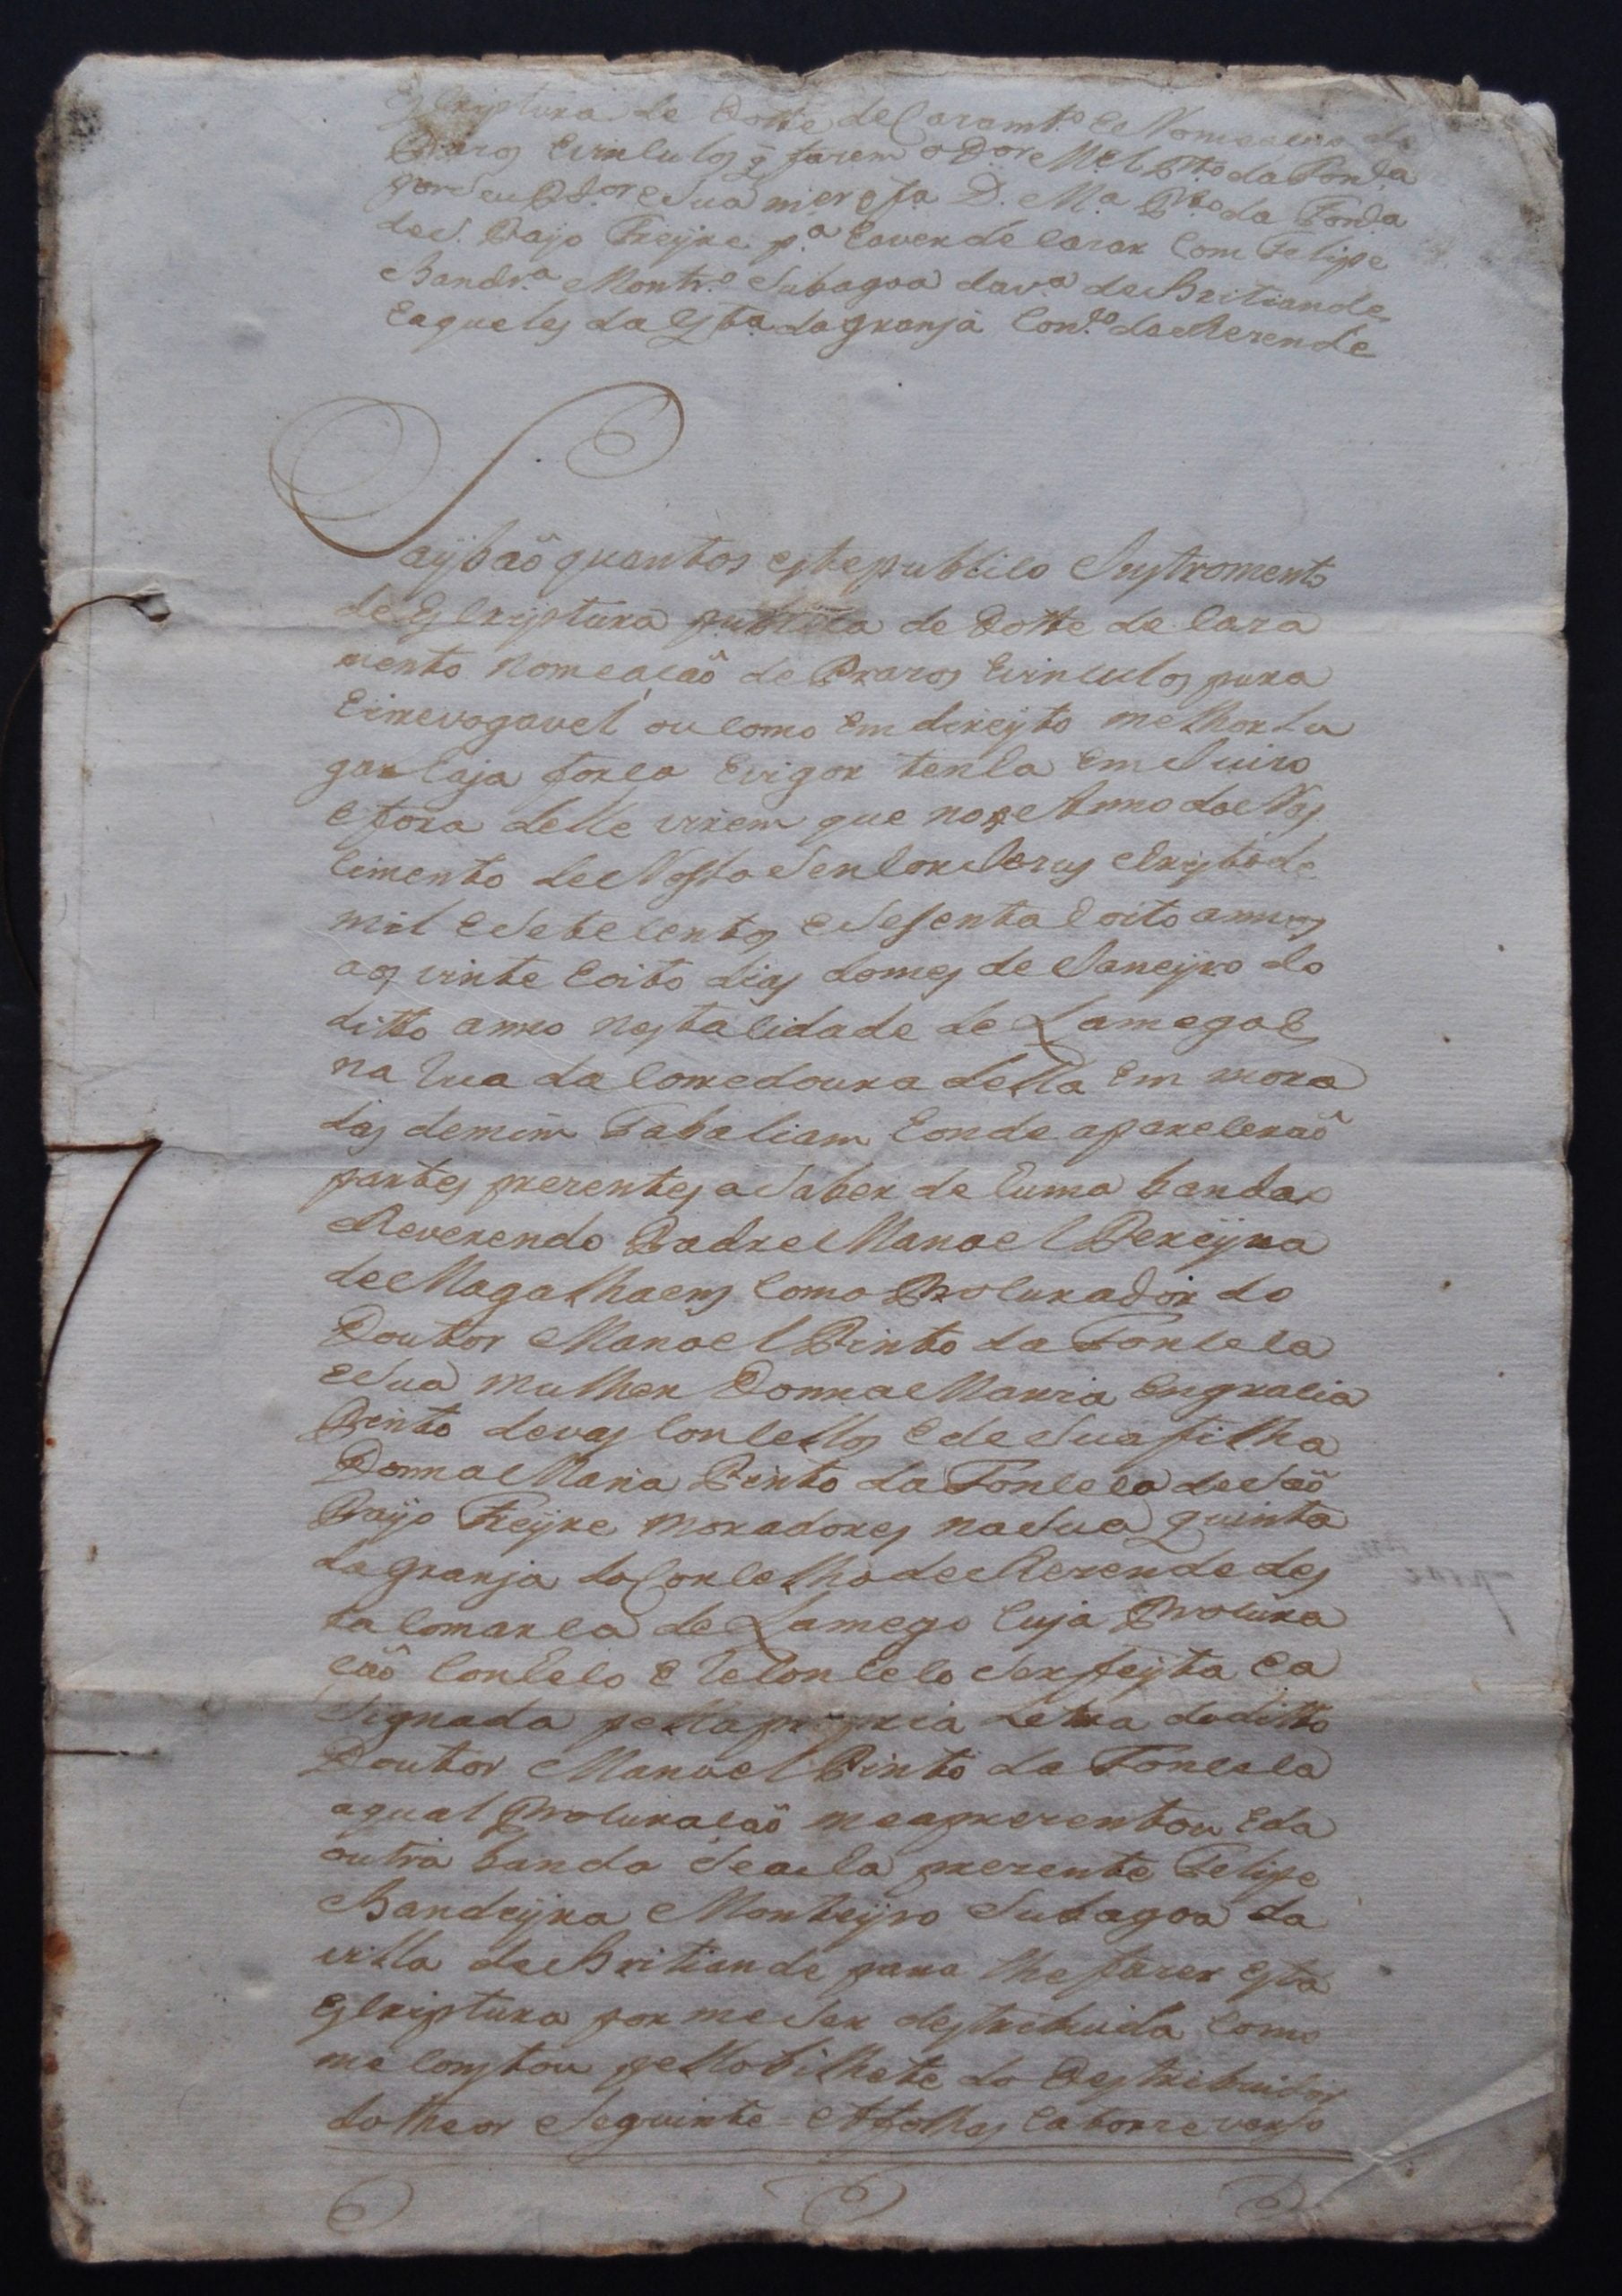 Escriptura de Dotte de Cazamt.º e Nomeacaõ de
Prazos e vinculos q̃ fazem o D.or M.el P.to da Fon.ca
por seu P.dor e sua m.er e f.a D. M.a P.to da Fon.ca
de S. Payo Freyre p.a haver de cazar com Felipe
Bandr.a Montr.o Subagoa da v.a de Britiande
e aqueles da q.ta da granja Con.º de Rezende
Sayбaõ quantos este publico Instromento
de Escriptura publica de Dotte de caza
mento nomeacaõ de Prazos e vinculos pura
e irrevogavel ou como em direyto melhor lu
gar haja forca e vigor tenha em Juizo
e fora delle virem que no Anno do Nas
cimento de Nosso Senhor Jezus Christo de
mil e Sete centos e Sesenta e oito annos
aos vinte e oito dias do mes de Janeyro do
ditto anno nesta cidade de Lamego e
na rua da Corredoura della em mora
das de mim Tabaliam e onde aparecerao
partes prezentes a Saber de huma banda o
Reverendo Padre Manoel Pereyra
de Magalhaens como Procurador do
Doutor Manoel Pinto da Fonceca
e Sua mulher Donna Maria Engracia
Pinto de vas concellos e de Sua filha
Donna Maria Pinto da Fonceca de Saõ
Payo Freyre moradores na Sua quinta
da granja do Concelho de Rezende des
ta comarca de Lamego cuja Procura
caõ conheco e reconheco Ser feyta e a
Signada pella propria Letra do ditto
Doutor Manoel Pinto da Fonceca
a qual Procuracaõ me aprezentou e da
outra banda Se acha prezente Felipe
Bandeyra Monteyro Subagoa da
villa de Britiande para lhe fazer esta
escriptura por me Ser destribuida como
me constou pello bilhete do Destribuidor
do theor Seguinte = A folhas catorze verso